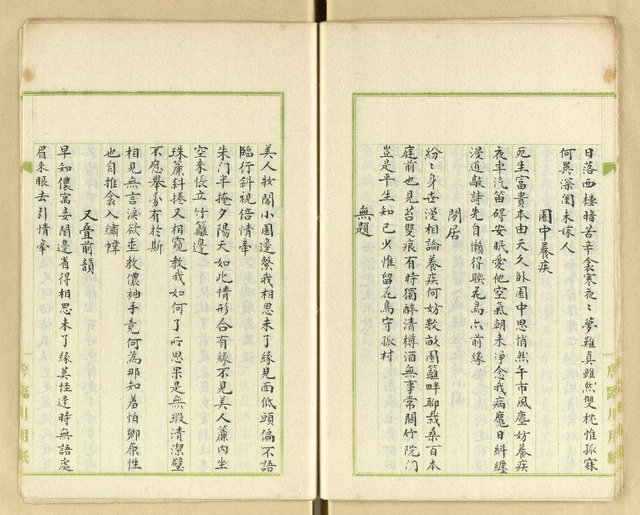 日落西樓暗苦辛衾寒夜〻夢難真雖然雙枕惟孤寐
何異深閨未嫁人
園中養疾
死生富貴本由天久臥園中思悄然午市風塵妨養疾
夜車汽笛碍安眠愛他空氣朝來淨念我病魔日糾纏
漫道敲詩先自懶得聯花鳥亦前緣
閑居
紛〻身世漫相論養疾何妨數畝園籬畔聊栽桑百本
庭前也見苔雙痕有時獨醉清樽酒無事常關竹院門
豈是平生知己少惟留花鳥守孤村
無題
美人妝閣小園邊繫我相思未了緣見面低頭偏不語
臨行斜視倍情牽
朱門半掩夕陽天如此情形合有緣不見美人簾內坐
空來悵立竹籬邊
珠簾斜捲又相窺教我如何了所思果是無瑕清潔璧
不應舉動有於斯
相見無言淚欲垂教儂袖手竟何為那知着怕卿原性
也自推衾入繡幃
又疊前韻
早知儂寓妾閣邊省得相思未了緣莫怪逢時無語處
眉來眼去引情牽
詹臨川用紙